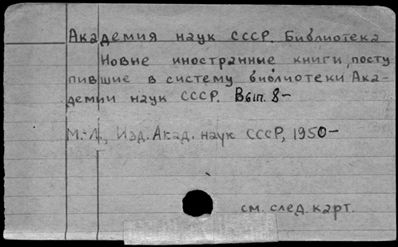 Академия наук СССР. Библиотека
Новые иностранные книги, посту
пившие в систему библиотеки Ака-
демии наук СССР. Вып. 8-
М.-Л., Изд. Акад. наук СССР, 1950-
см. след. карт.